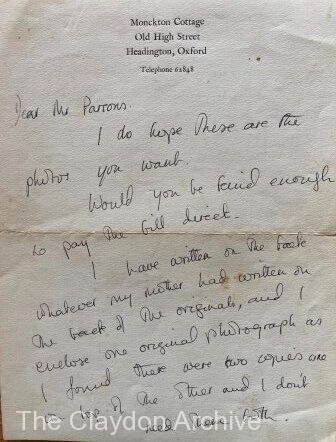 Monckton Cottage
Old High Street
Headington, Oxford
Telephone 61848
Dear Mr Parrons.
I do hope these are the
photos you want.
Would you be kind enough
to pay the bill direct.
I have written on the back
whatever my mother had written on
the back of the originals, and I
enclose one original photograph as
I found there were two copies one
on top of the other and I don't
need them both.
The Claydon Archive